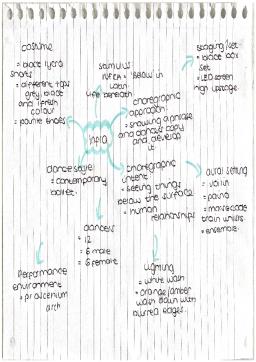 costume
= black lycra
shorts
= different tops
grey, black
and 1 fresh
colour
= pointe shoes
stimulus
infra = below in
latin
life beneath
staging/set
= black box
set
= LED screen
high upstage
choreographic
approach
= showing a phrase
and dancers copy
and develop
it
infra
dance style
= contemporary
ballet.
choreographic
intent
= seeing things
below the surface
= human
relationships
aural setting
= violin
= piano
= morse code
train whistles
= ensemble.
dancers
= 12
= 6 male
= 6 female
performance
environment
= proscenium
arch
lighting
= white wash
= orange/amber
wash down with
blurred edges.